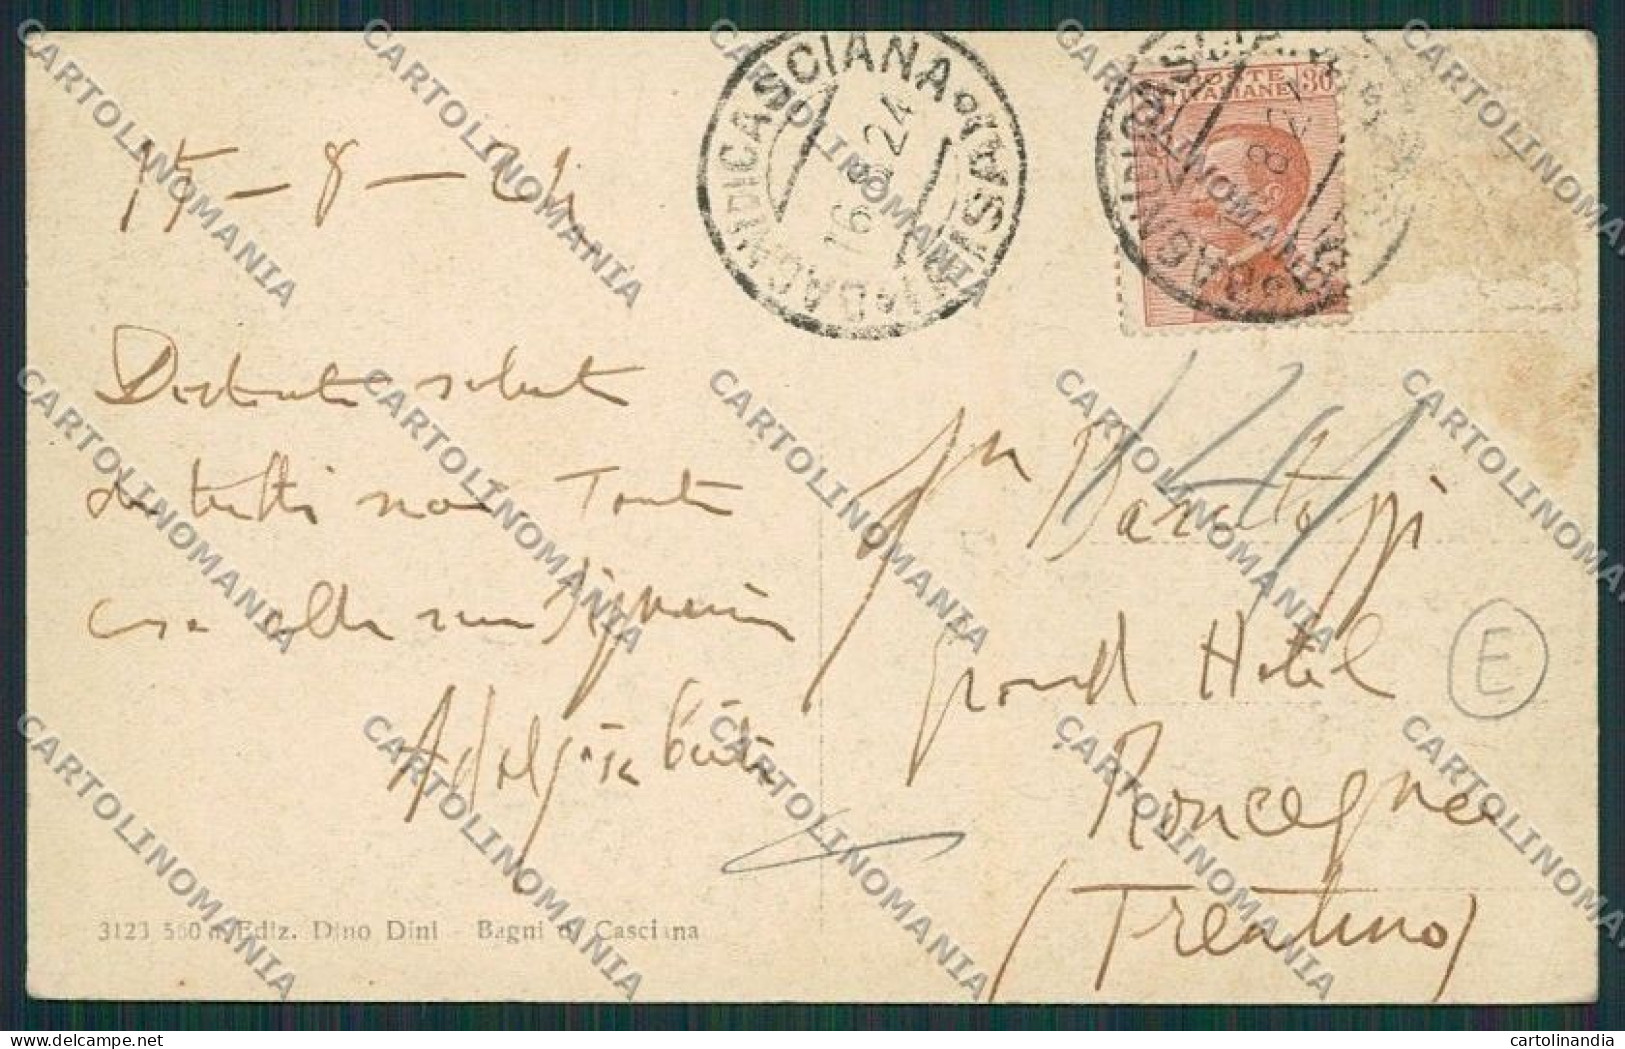 BAGNI DI CASCIANA (PISA)
16.8.24
POSTE ITALIANE 30
15-8-24
Distinti saluti
da tutti noi Tante
cose alla sua Signora
Baratozzi
Grand Hotel
Roncegno
(Trentino)
E
3123 560 Ediz. Dino Dini - Bagni di Casciana
CARTOLINOMANIA
cartolinandia